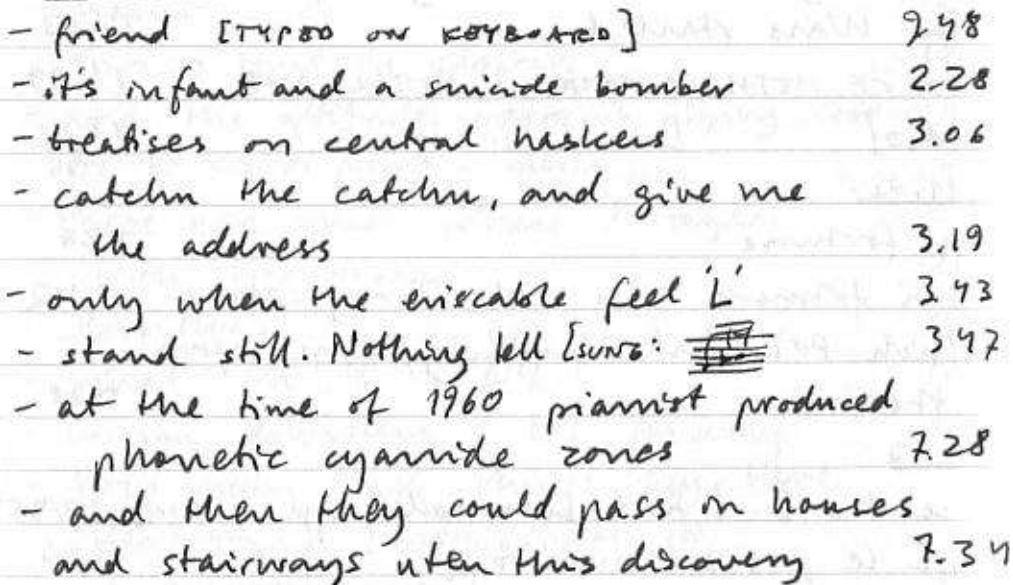 - friend [TYPED ON KEYBOARD] 2.48
- it's infant and a suicide bomber 2.28
- treatises on central haskers 3.06
- catchn the catchn, and give me
the address 3.19
- only when the feel 'L' 3.43
- stand still. Nothing tell [SUNG: 3.47
- at the time of 1960 pianist produced
phonetic cyanide zones 7.28
- and then they could pass on houses
and stairways uten this discovery 7.34